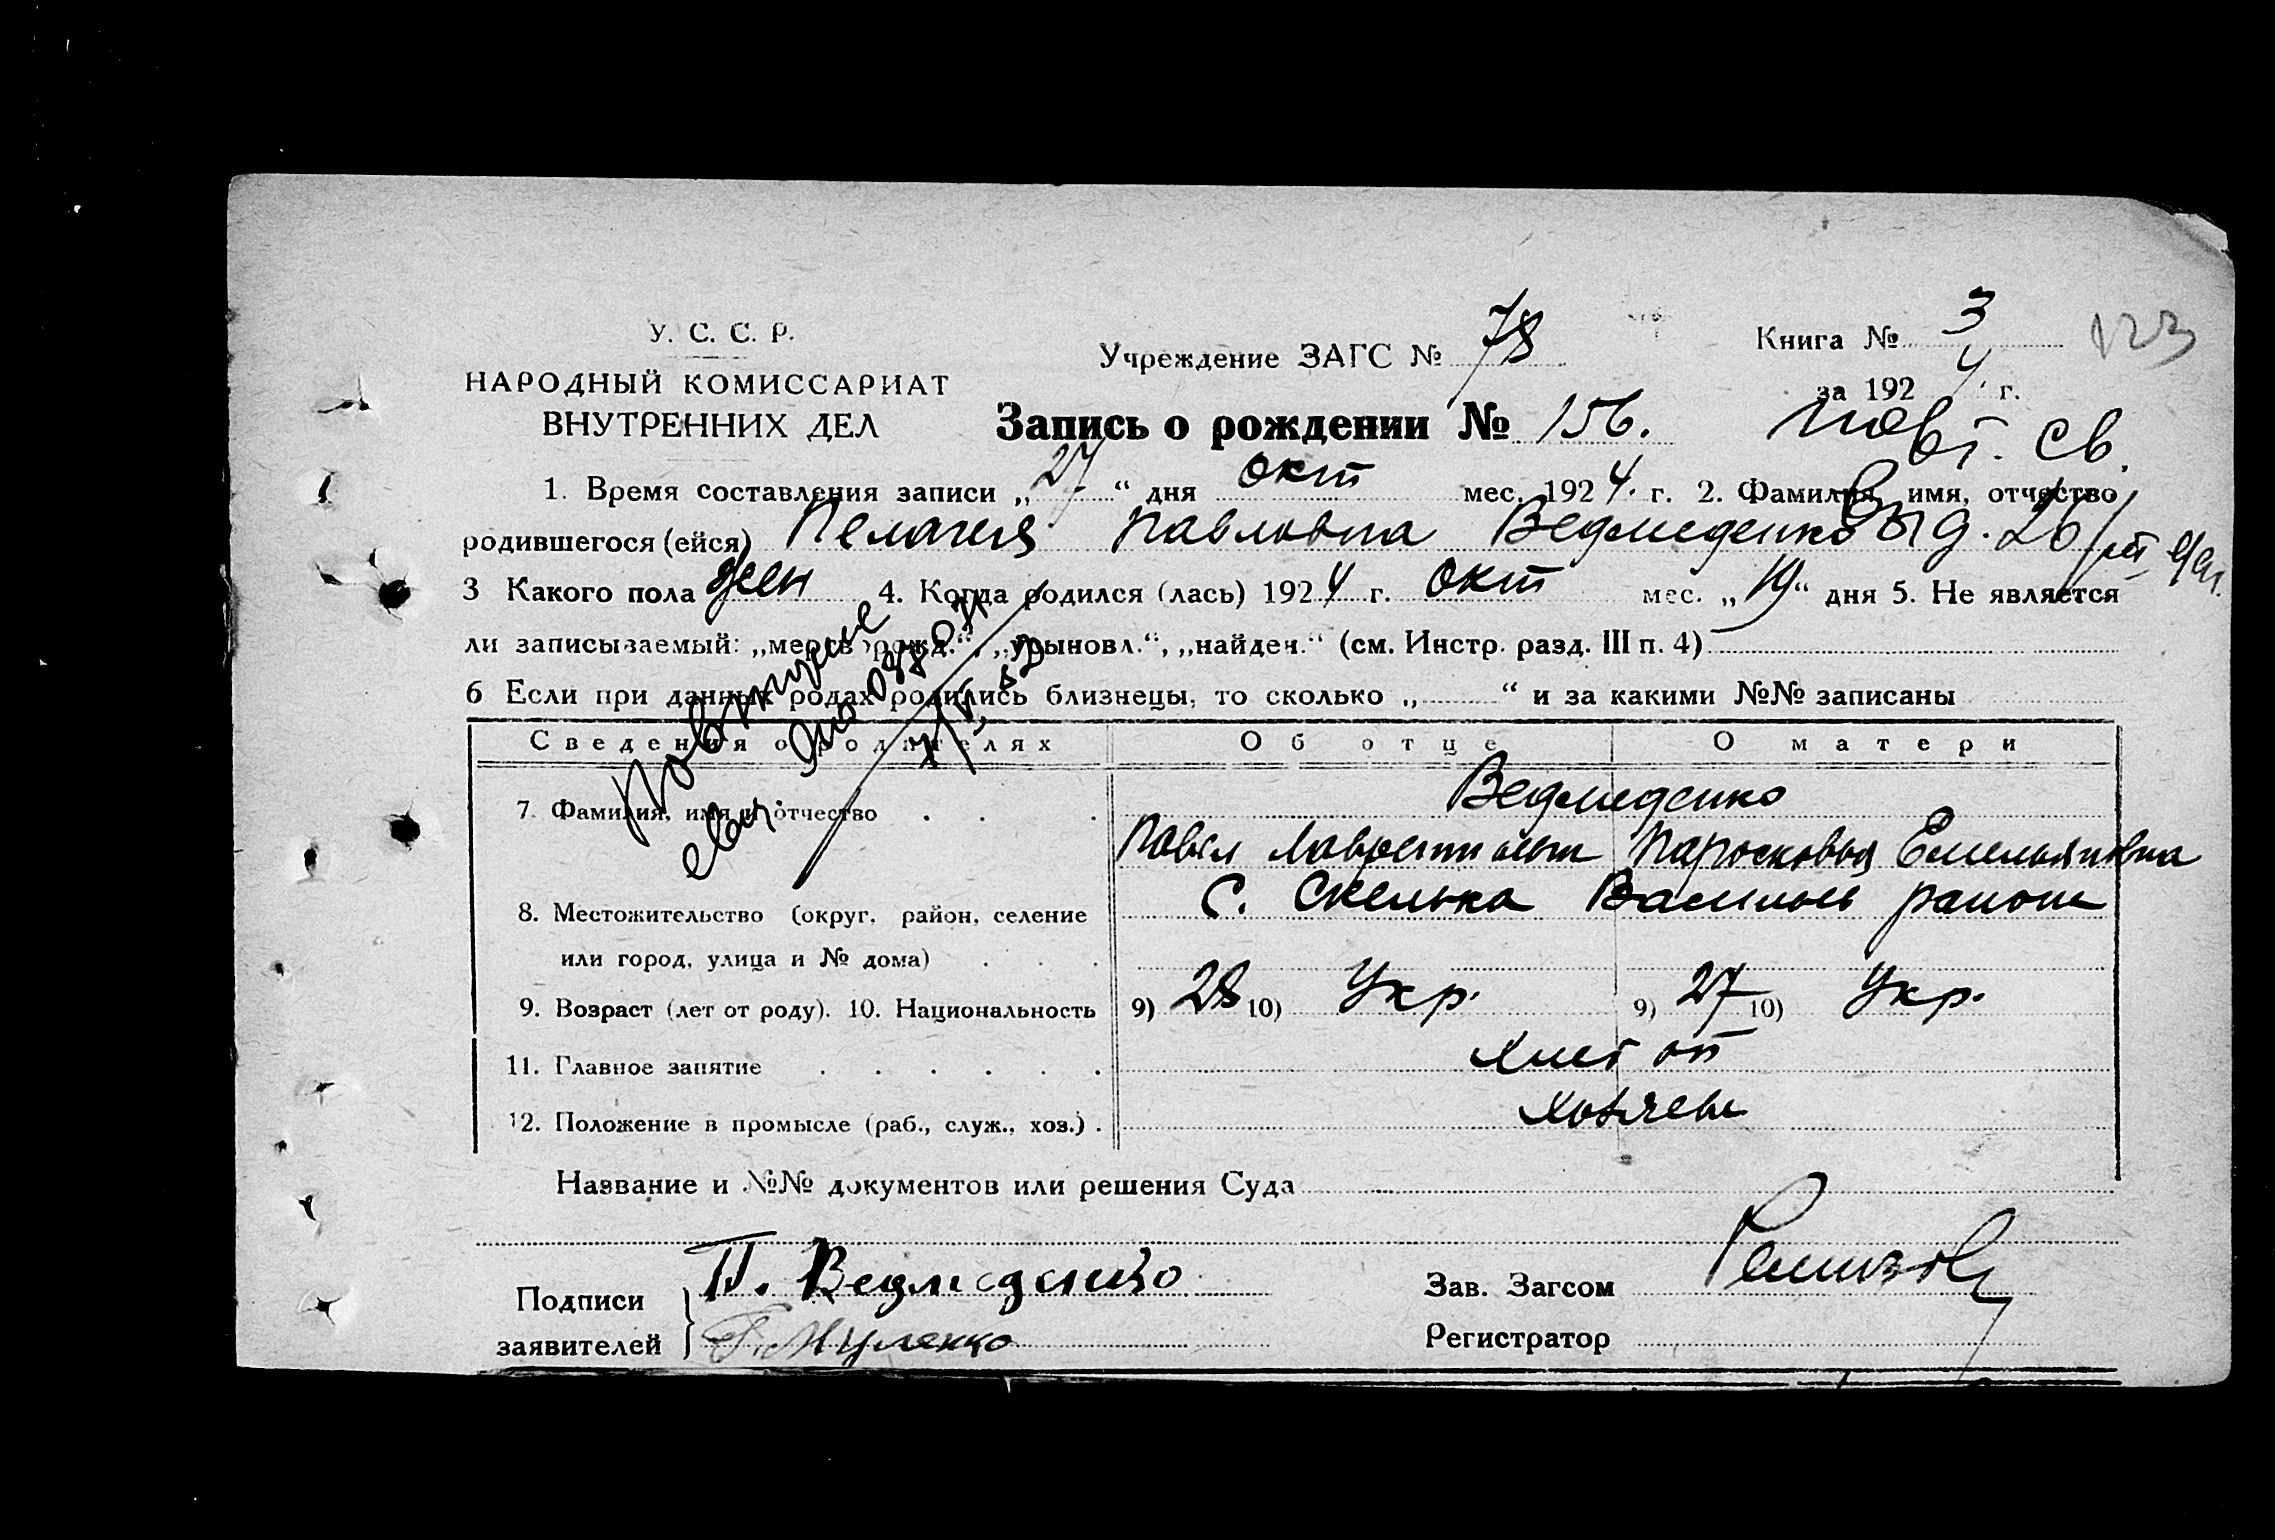 У. С. С. Р.
НАРОДНЫЙ КОМИССАРИАТ
ВНУТРЕННИХ ДЕЛ
Учреждение ЗАГС № 78
Книга № 3
123
за 192 4 г.
Запись о рождении № 156.
Повт. св.
выд. 26/
1. Время составления записи „ 27 “ дня окт мес. 192 4. г. 2. Фамилия, имя, отчество
родившегося (ейся) Пелагея Павловна Ведмеденко
3 Какого пола жен 4. Когда родился (лась) 192 4 г. окт мес. „ 19 “ дня 5. Не является
ли записываемый: „мертв рожд.“, „усыновл.“, „найден.“ (см. Инстр. разд. III п. 4)
6 Если при данных родах родились близнецы, то сколько „ “ и за какими №№ записаны
Повторное
Сведения о родителях Об отце О матери
7. Фамилия, имя и отчество Ведмеденко
Павел Лаврентьев Парасковья Емельяновна
8. Местожительство (округ, район, селение С. Скелька Васильев района
или город, улица и № дома)
9. Возраст (лет от роду). 10. Национальность 9) 28 10) Укр. 9) 27 10) Укр.
11. Главное занятие Хлеб
12. Положение в промысле (раб., служ., хоз.) хозяева
Название и №№ документов или решения Суда
Подписи П. Ведмеденко
заявителей
Зав. Загсом
Регистратор